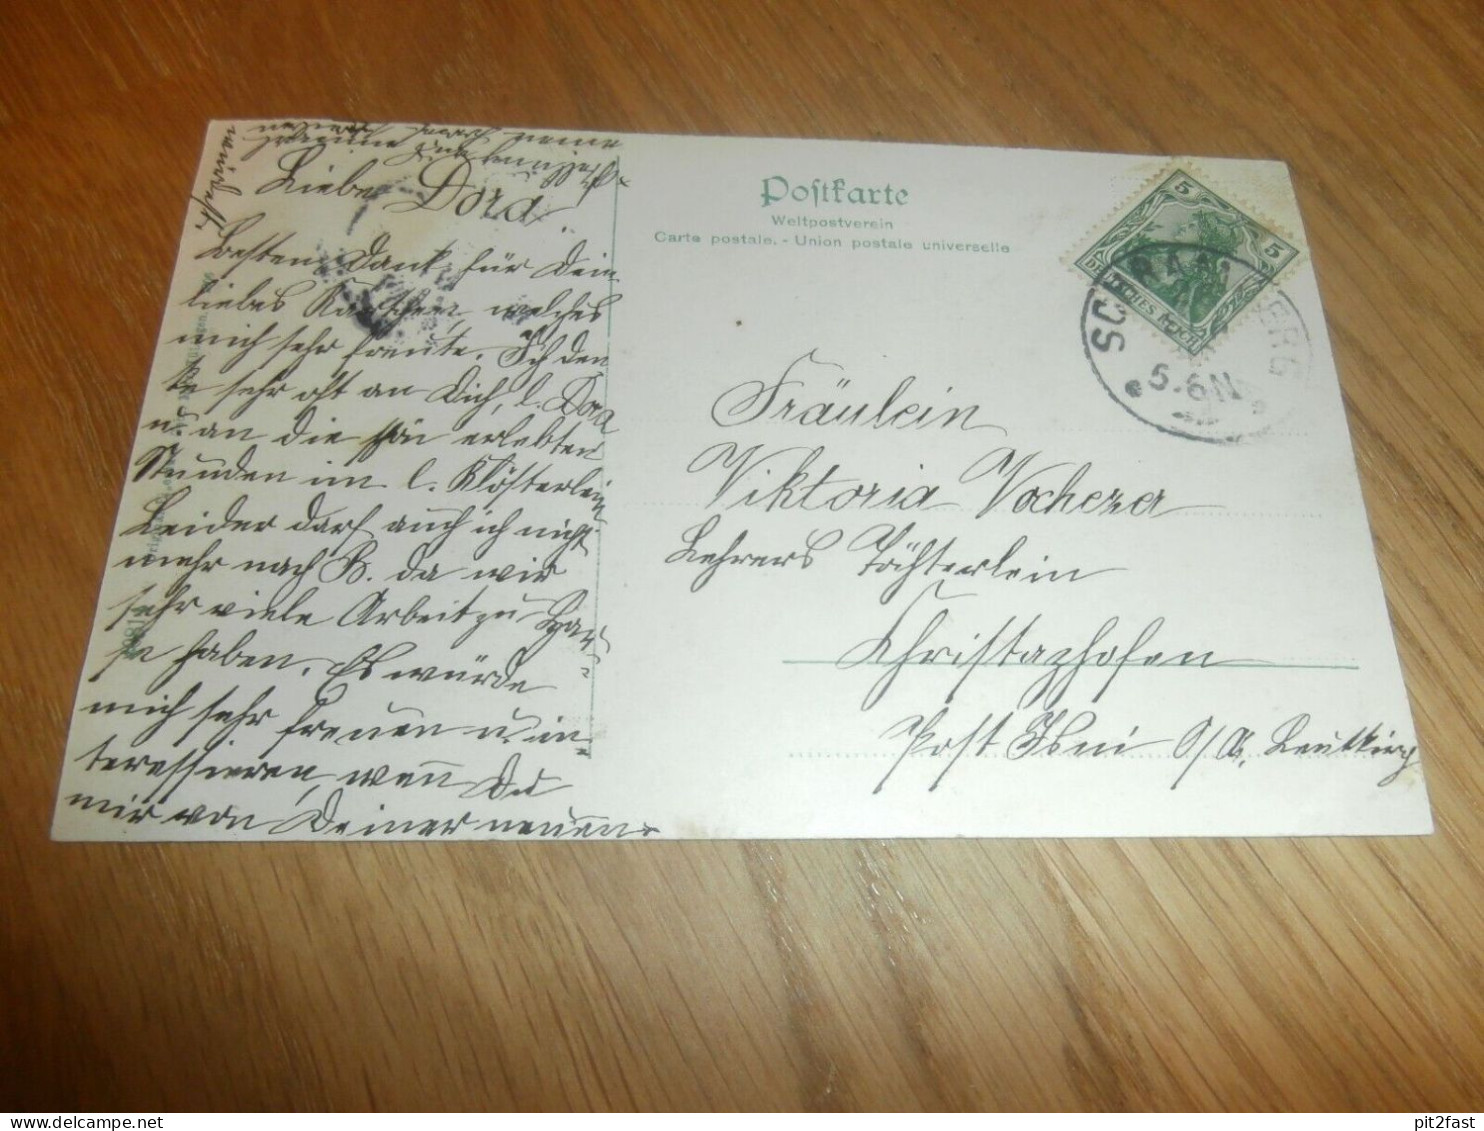 Liebe Dora
Besten Dank für Dein
liebes Kärtchen, welches
mich sehr freute. Ich den
te sehr oft an Dich, l. Dora
u. an die schön erlebten
Stunden im l. Klösterlein
Leider darf auch ich nicht
mehr nach B. da wir
sehr viele Arbeit zu Hau-
se haben. Es würde
mich sehr freuen u. in-
teressieren, wenn Du
mir von Deiner neuen
Postkarte
Weltpostverein
Carte postale. - Union postale universelle
5 5
DEUTSCHES REICH
5-6N
Fräulein
Viktoria Vochezer
Lehrers Töchterlein
Christazhofen
Post Isni O/A. Leutkirch
pit2fast